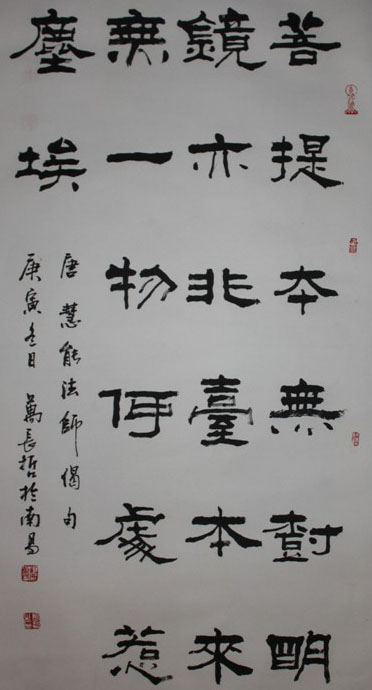 菩提本無樹明
鏡亦非臺本來
無一物何處惹
塵埃
唐慧能法師偈句
庚寅冬日萬長哲於南昌